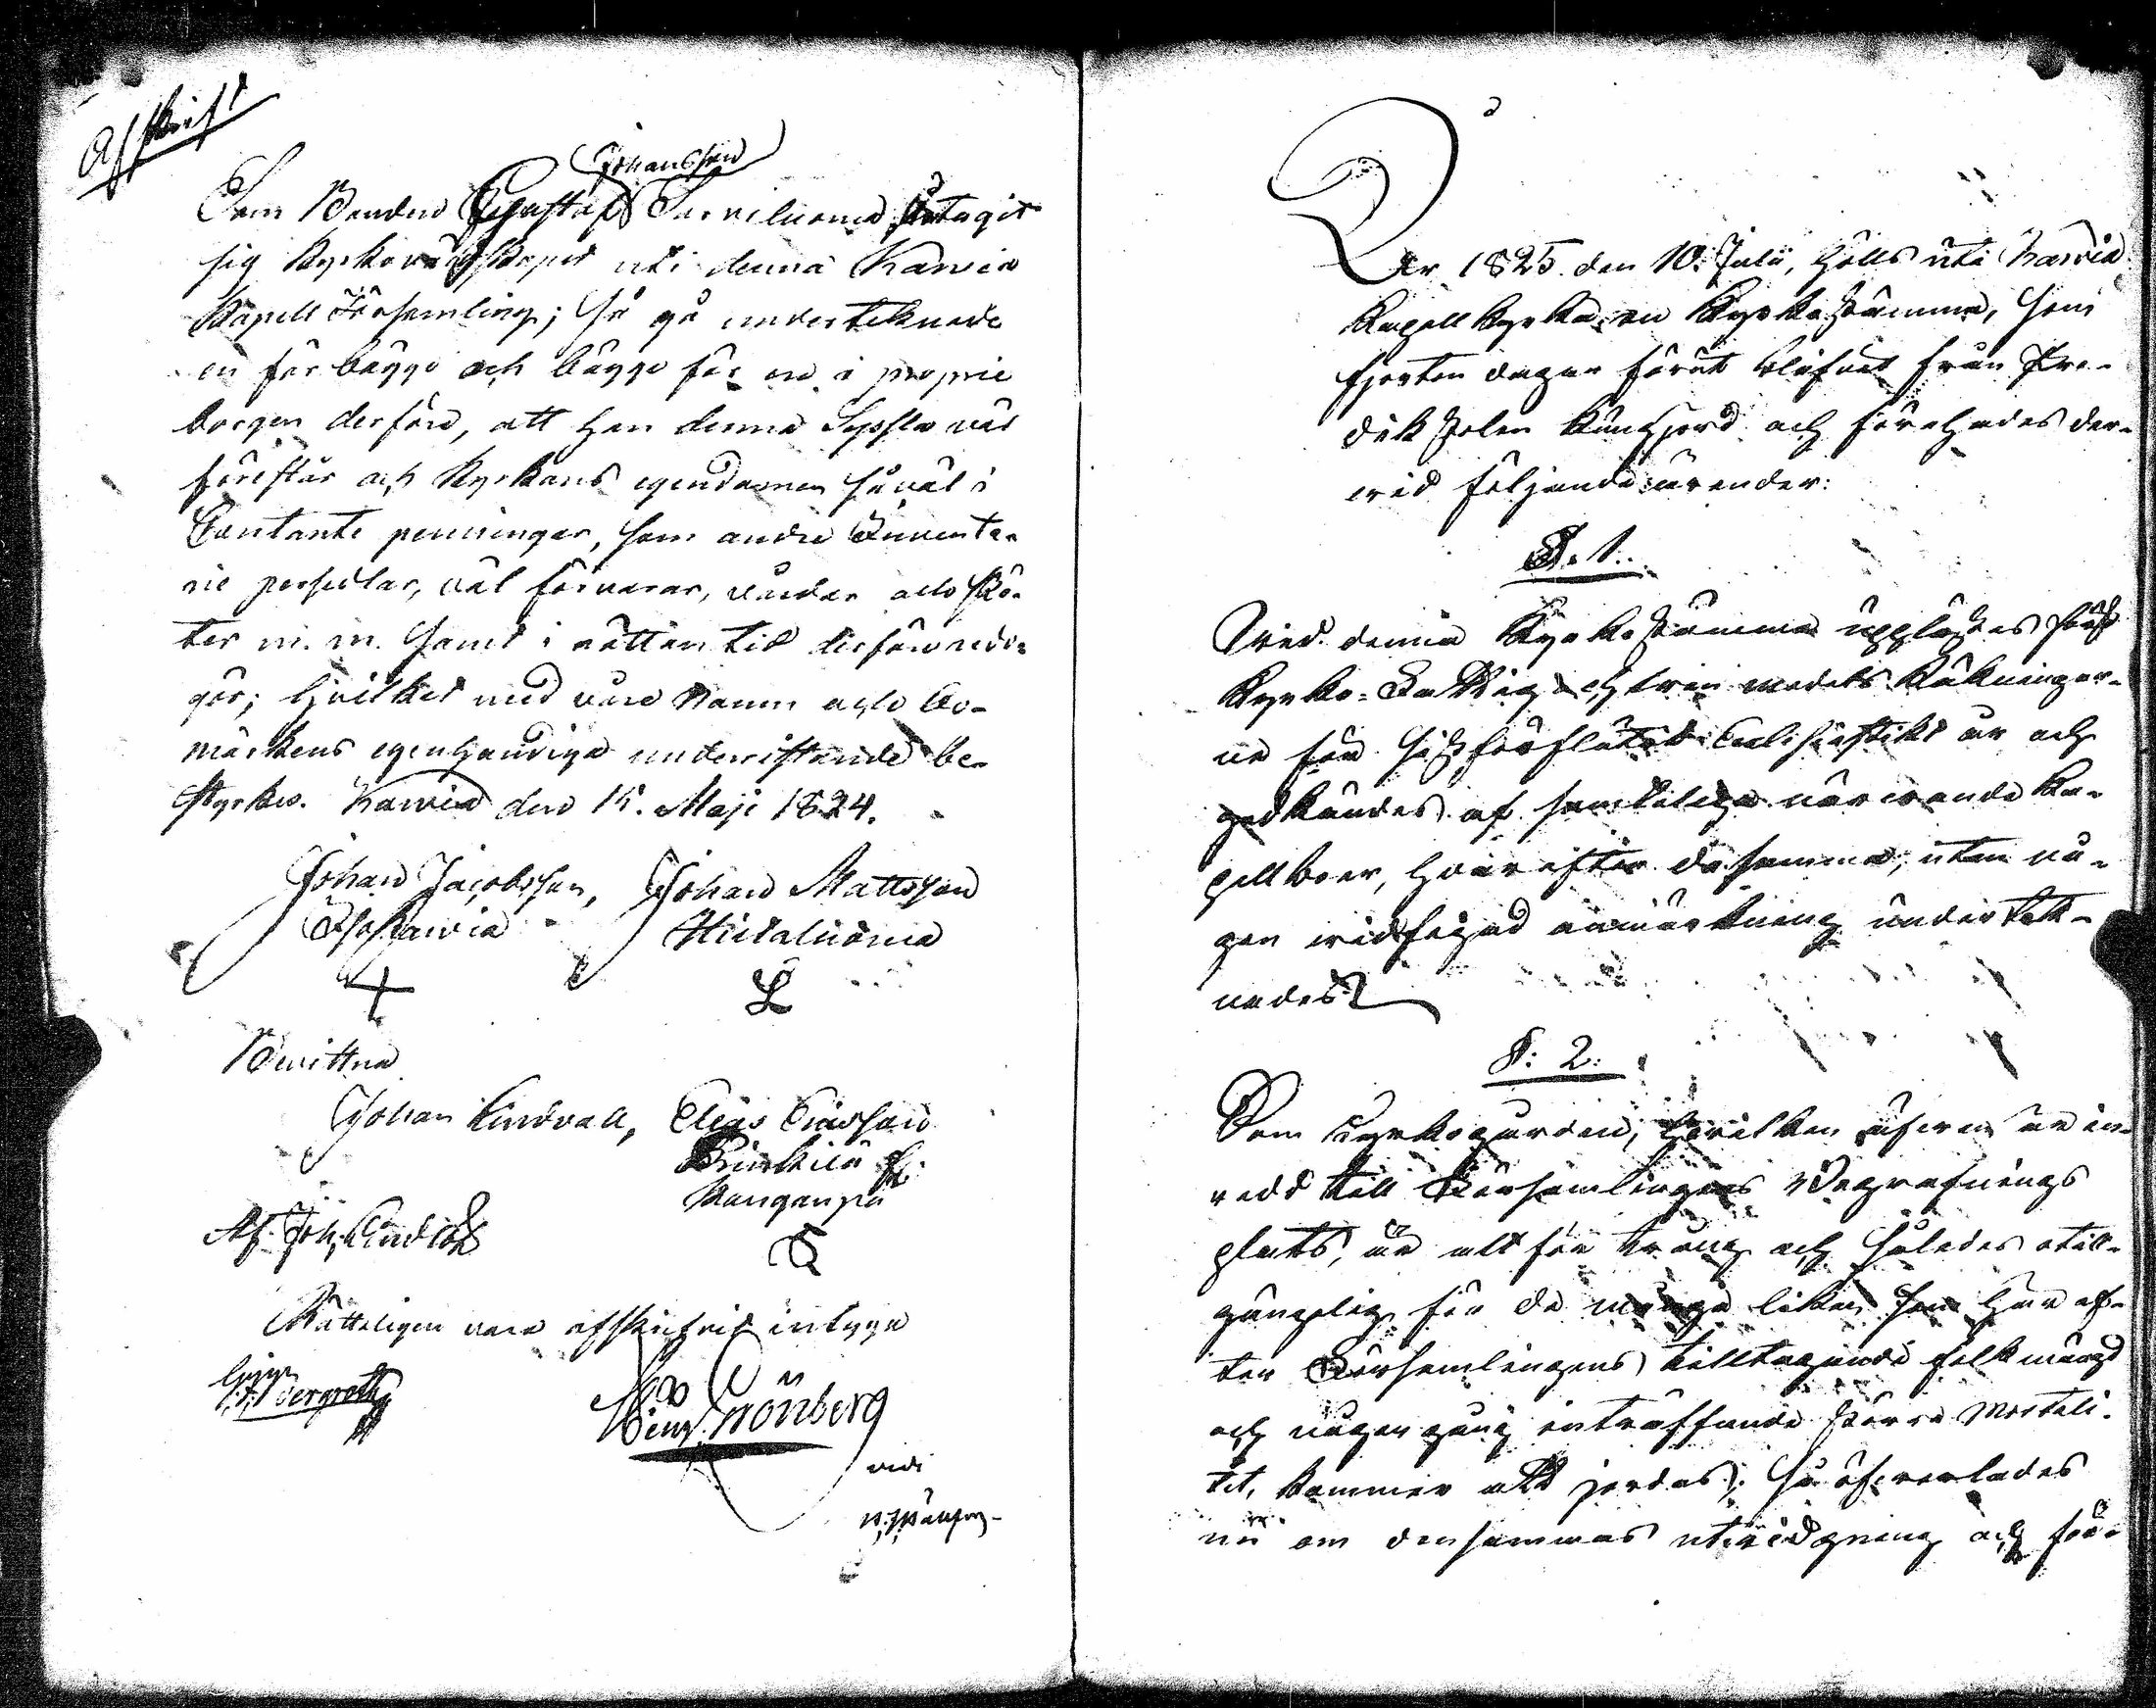 Afskrift
Johansson
Som Bonden Gustaf Sarviluoma åtagit
sig Kyrkovärdskapet uti denna Karvia
Kapell Församling; så gå undertecknade
en för bägge och bägge för en i proprie
borgen derföre, att han denna Syssla väl
förestår och Kyrkans egendomen såväl i
Contante penningar, som andre Inventa-
rie persedlar, väl förvarar, vårdar och skö-
ter m. m. samt i rättan tid derföre redo-
gör; hvilket med våre Namn och bo-
märkens egenhändiga underristande be-
styrkes. Karvia den 16. Maji 1824.
Johan Jacobsson, Johan Mattsson
Ylikarvia Hietaluoma
Bevittna
Johan Lindvall, Elias Eliasson
Kanganpä
Af. Joh. Lindvall
Rätteligen vara afskrifvit intyga
Henr. Grönberg
vidi
År 1825. den 10. Julii, hölls uti Karvia
Kapell kyrka en Kyrkostämma, som
fjorton dagar förut blifvit från Pre-
dik stolen kungjord och förehades der-
vid följande ärender:
§. 1.
Vid denna Kyrkostämma upplästes först
Kyrko- Fattig och medels Räkningar-
ne för sistförflutet Ecclesiastikt år och
godkändes af samteliga närvarande Ka-
pellboer, hvarefter de samma, uten nå-
gon vidfogad anmärkning undertek-
nades.
§: 2:
Som kyrkogården, hvilken äfven är in-
redd till Församlingens Begrafnings
plats, är allt för trång och således otill-
gängelig för de många liken som här ef-
ter Församlingens tilltagande folkmängd
och någon gång inträffande större Mortali-
tet, kommer att jordas; så öfverlades
nu om densammas utvidgning och för-